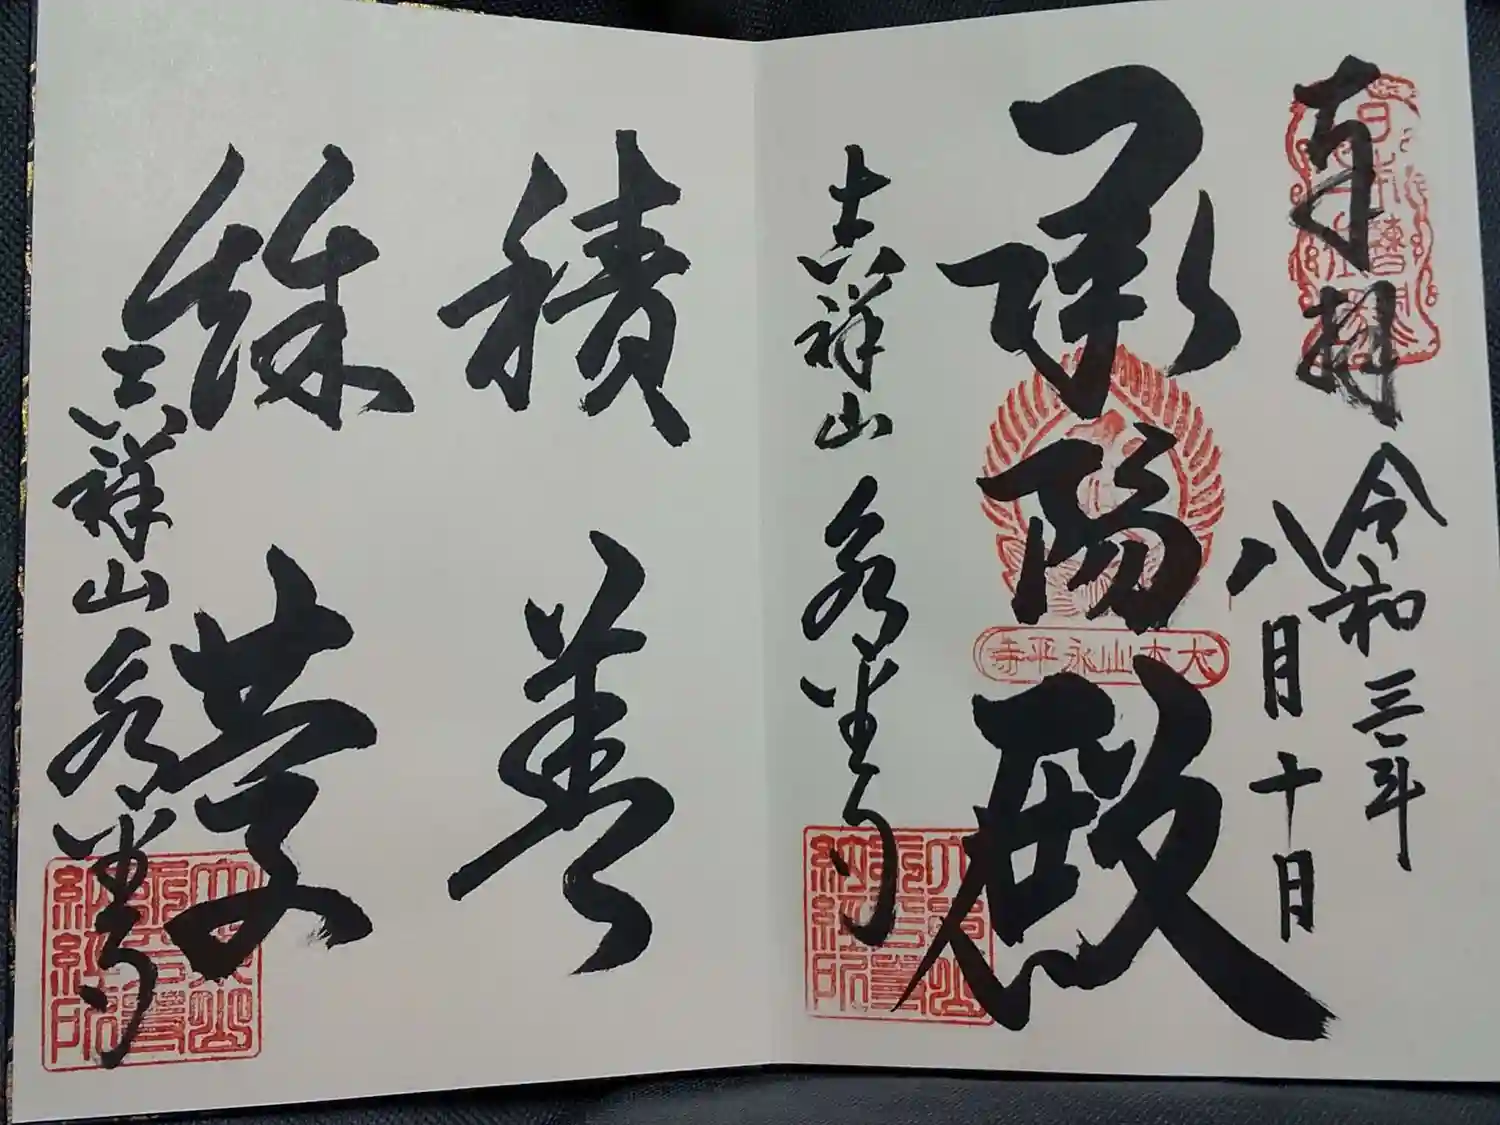 奉拝
令和三年
八月十日
承陽殿
大本山永平寺
吉祥山 永平寺
積善
餘慶
吉祥山 永平寺
納経所